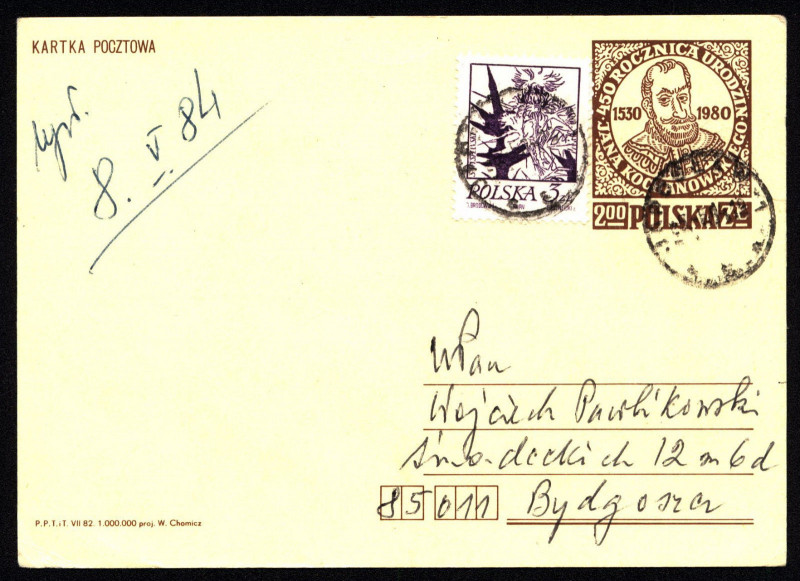 KARTKA POCZTOWA
wysł.
8. V 84
POLSKA 3
450 ROCZNICA URODZIN
JANA KOCHANOWSKIEGO
1530 1980
2.00 POLSKA ZŁ
WPan
Wojciech Pawlikowski
Śniadeckich 12 m 6d
85011 Bydgoszcz
P.P.T.iT. VII 82. 1.000.000 proj. W. Chomicz